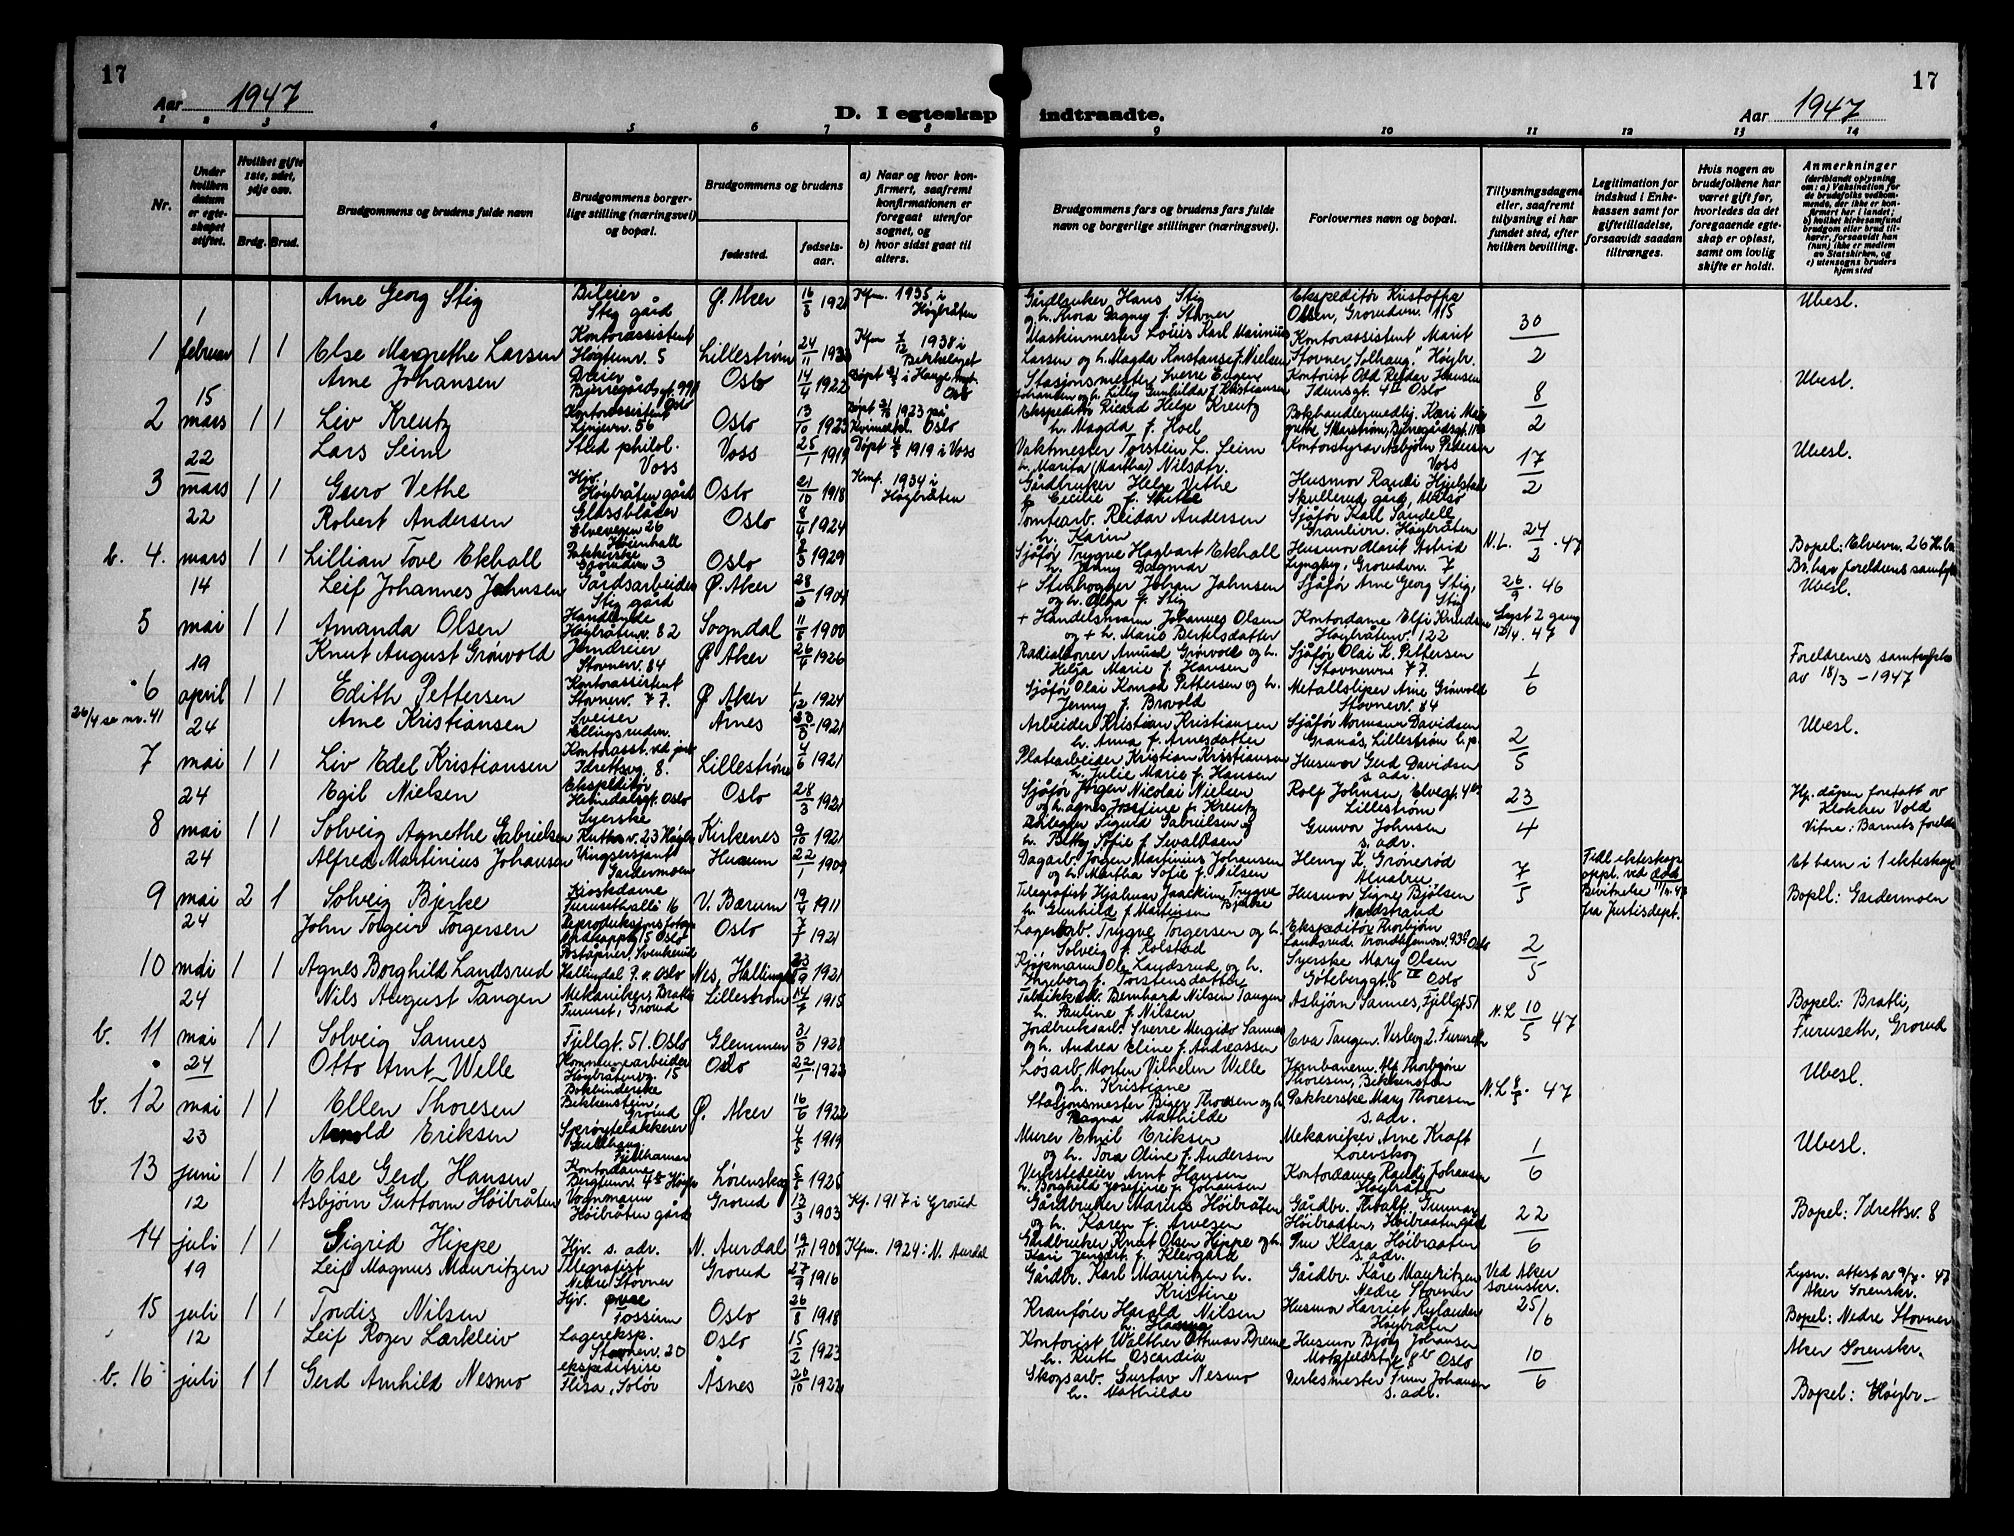 17
Aar 1947
D. I egteskap
1 2 3 4 5 6 7 8
Nr.
Under hvilken datum er egteskapet stiftet.
Hvilket gifte 1ste, 2det, 3dje osv.
Brdg. Brud.
Brudgommens og brudens fulde navn
Brudgommens borgerlige stilling (næringsvei) og bopæl.
Brudgommens og brudens
fødested.
fødselsaar.
a) Naar og hvor konfirmert, saafremt konfirmationen er foregaat utenfor sognet, og
b) hvor sidst gaat til alters.
1 1 februar 1 1
Arne Georg Stig Bileier Stig gård Ø. Aker 1921 Kfm. 1935 i Høybråten
Else Margrethe Larsen Kontorassistent Lillestrøm 24/11 Kfm 1938 i Bekkelaget
2 15 mars 1 1
Arne Johansen Dreier Oslo 14/4 1922 Oslo
Liv Kreutz Kontorassistent Linjevn. 56 Oslo 13/10 1923 Døpt 1923 på Kvinnekl. Oslo
3 22 mars 1 1
Lars Seim Stud philol. Voss Voss 25/1 1919 Døpt 1919 i Voss
Guro Vethe Hjv. Høybråten gård Oslo 21/10 1918 Kmf. 1934 i Høybråten
b. 4. 22 mars 1 1
Robert Andersen Glassblåser Elveveien 26 Høienhall Oslo 8/4 1924
Lillian Tove Ekhall Pakkerske Grorudvn 3 Oslo 1929
5 14 mai 1 1
Leif Johannes Jahnsen Gårdsarbeider Stig gård Ø. Aker 1904
Amanda Olsen Høybråtenv. 82 Sogndal 1900
6 19 april 1 1
26/4 se nr. 41
Knut August Grøwold Jerndreier Stovnerv. 84 Ø Aker 26/4 1926
Edith Pettersen Kontorassistent Stovnerv. 77. Ø Aker 1/12 1924
7 24 mai 1 1
Arne Kristiansen Sveiser Ellingsrudvn. Årnes 1921
Liv Edel Kristiansen Kontorasst. ved jernb Idrettsvg. 8. Lillestrøm 4/6 1921
8 24 mai 1 1
Egil Nielsen Ekspeditør Oslo 28/3 1921
Solveig Agnethe Gabrielsen Syerske Ruthsv. 23 Høybr Kirkenes 9/10 1921
9 24 mai 2 1
Alfred Martinius Johansen Vingsersjant Gardermoen Hurum 22/1 1909
Solveig Bjerke Kioskdame Furusethallé 16 V. Bærum 19/4 1911
10 24 mai 1 1
John Torgeir Torgersen Reproduksjonsfotogr Oslo 1921
Agnes Borghild Landsrud Hallingdal p. a. Oslo Nes, Hallingdal 23/9 1921
b. 11 24 mai 1 1
Nils August Tangen Mekaniker, Bratli Furuset, Grorud Lillestrøm 14/7 1915
Solveig Sannes Fjellgt. 51. Oslo Glemmen 1928
b. 12 24 mai 1 1
Otto Arnt Wille Kommunearbeider Høybråtenvg. 15 Oslo 22/1 1922
Ellen Thoresen Bokbinderske Bekkenstein, Grorud Ø. Aker 16/6 1922
13 23 juni 1 1
Arnold Eriksen Sprøytelakkerer Fjellhamar 1919
Else Gerd Hansen Kontordame Lørenskog 1926
14 12 juli 1 1
Asbjørn Guttorm Høibråten Vognmann Høibråten gård Grorud 13/3 1903 Kf. 1917 i Grorud
Sigrid Hippe Hjv. s. adr. N. Aurdal 19/11 1908 Kfm. 1924 i N. Aurdal
15 19 juli 1 1
Leif Magnus Mauritzen Telegrafist Nedre Stovner Grorud 27/9 1916
Tordis Nilsen Hjv. øvre Fossum Oslo 26/8 1918
b. 16 12 juli 1 1
Leif Roger Lærkleiv Lagereksp. Stovnerv. 20 Oslo 15/2 1923
Gerd Arnhild Nesmo ekspeditrise Flisa, Solør Åsnes 20/10 1922
17
indtraadte.
Aar 1947
9 10 11 12 13 14
Brudgommens fars og brudens fars fulde navn og borgerlige stillinger (næringsvei).
Forlovernes navn og bopæl.
Tillysningsdagene eller, saafremt tillysning ei har fundet sted, efter hvilken bevilling.
Legitimation for indskud i Enkekassen samt for giftetilladelse, forsaavidt saadan tiltrænges.
Hvis nogen av brudefolkene har været gift før, hvorledes da det foregaaende egteskap er opløst, samt om lovlig skifte er holdt.
Anmerkninger
(deriblandt oplysning om: a) Vaksination for de brudefolks vedkommende, der ikke er konfirmert her i landet; b) hvilket kirkesamfund brudgom eller brud tilhører, forsaavidt han (hun) ikke er medlem av Statskirken, og c) utensogns bruders hjemsted
Gårdbruker Hans Stig og h. Thora Dagny f. Stovner Ekspeditør Kristoffer Olsen, Grorudvn. 115 30/2 Ubesl.
Maskinmester Louis Karl Marinius Larsen og h. Magda Konstanse f. Nielsen Kontorassistent Marit Stovner, "Solhaug" Høybr.
Stasjonsmester Sverre Eugen Johansen og h. Lilly Gunhilda f. Kristiansen Kontorist Odd Reidar Hansen Idunsgt. 4 II Oslo 8/2 Ubesl.
Ekspeditør Ricard Helge Kreutz h. Magda f. Hoel Bokhandlermedhj. Kari
Vaktmester Torstein L. Seim h. Marita (Martha) Nilsdtr. Kontorstyrer Asbjørn Pedersen Voss 17/2 Ubesl.
Gårdbruker Helge Vethe Cecilie f. Husmor Randi Hjelstad Skullerud gård, Abilsø
Tomtearb. Reidar Andersen h. Karin Sjåfør Karl Sandell Granlivn. Høybråten N.L. 24/2. 47 Bopel: Elvevn. 26
Sjåfør Trygve Hagbart Ekhall h. Jenny Dagmar Husmor Marit Astrid Lyngby, Grorudvn. 7 Br. har foreldrenes samtykke
+ Stenhogger Johan Jahnsen og h. Olga f. Stig Sjåfør Arne Georg Stig, Stig 26/9. 46 Ubesl.
+ Handelsmann Johannes Olsen og + h. Marie Bertelsdatter Kontordame Elfi Knudsen Høybråtenv. 122 Lyst 2 gang 12/4. 47
Radialborrer Amund Grøwold og h. Helga Marie f. Hansen Sjåfør Olai K. Pettersen Stovnervn 77. 1/6 Foreldrenes samtykke av 18/3 - 1947
Sjåfør Olai Konrad Pettersen og h. Jenny f. Brovold Metallsliper Arne Grøwold Stovnerv. 84
Arbeider Kristian Kristiansen h. Anna f. Arnesdatter Sjåfør Normann Davidsen Granås, Lillestrøm 2/5 Ubesl.
Platearbeider Kristian Kristiansen h. Julie Marie f. Hansen Husmor Gerd Davidsen s. adr.
Sjåfør Jørgen Nicolai Nielsen og h. Agnes Josefine f. Kreutz Rolf Johnsen, Elvegt. Lillestrøm 23/4 Hj. dåpen foretatt av Klokker Vold
Sigurd Gabrielsen og h. Betty Sofie f. Sivaldsen Gunvor Johnsen s. adr. Vitne: Barnets foreldre
Dagarb. Jørgen Martinius Johansen og h. Martha Sofie f. Nilsen Henry K. Grønerød Alnabru 7/5 Tidl ekteskap oppl. ved død Bevitnelse 11/4. 47 fra Justisdept. Et barn i 1 ekteskap
Telegrafist Hjalmar Joachim Trygve Bjerke h. Gunhild f. Martinsen Husmor Signe Bjølsen Nordstrand Bopel: Gardermoen
Lagerarb. Trygve Torgersen og h. Solveig f. Rolstad Ekspeditør Thorbjørn Landsrud, Trondheimsvn. Oslo 2/5
Kjøpmann Ole Landsrud og h. Ingeborg f. Torstensdatter Syerske Mary Olsen Göteborggt. 5 IV Oslo
Fabrikkarb. Bernhard Nilsen Tangen h. Pauline f. Nilsen Asbjørn Sannes, Fjellgt. 51 N.L 10/5 47 Bopel: Bratli, Furuseth, Grorud
Jordbruksarb. Sverre Sannes og h. Andrea Eline f. Andreassen Eva Tangen. Furuseth
Løsarb Morten Vilhelm Wille og h. Kristiane Jernbanem. Alf Thorbjørn Thoresen, Bekkensten N.L 47 Ubesl.
Stasjonsmester Birger Thoresen og h. Ragna Mathilde Pakkerske Mary Thoresen s. adr.
Murer Emil Eriksen og h. Tora Oline f. Andersen Mekaniker Arne Kraft Lørenskog 1/6 Ubesl.
Verkstedeier Arnt Hansen h. Borghild Josefine f. Johansen Kontordame Randi Johansen Høybråten
Gårdbruker Marius Høibråten og h. Karen f. Arvesen Gårdbr. Gunnar Høibraaten, Høibraaten gård 22/6 Bopel: Idrettsv. 8
Gårdbruker Knut Olsen Hippe og h. Kari Jensdt. f. Klevgård Fru Klara Høibraaten s. adr.
Gårdbr. Karl Mauritzen h. Kristine Gårdbr. Kåre Mauritzen Nedre Stovner Ved Aker sorenskr. 25/6 Lysn. attest av 9/7. 47 Aker Sorenskr.
Kranfører Harald Nilsen h. Husmor Harriet Rylander Høybråten Bopel: Nedre Stovner
Kontorist Walther Ottmar h. Ruth Oscardia Husmor Bjørg Johansen Motzfeldtsg. 8b Oslo 10/6 Aker Sorenskr.
Skogsarb. Gustav Nesmo h. Mathilde Verksmester Johansen s. adr. Bopel: Høybr.